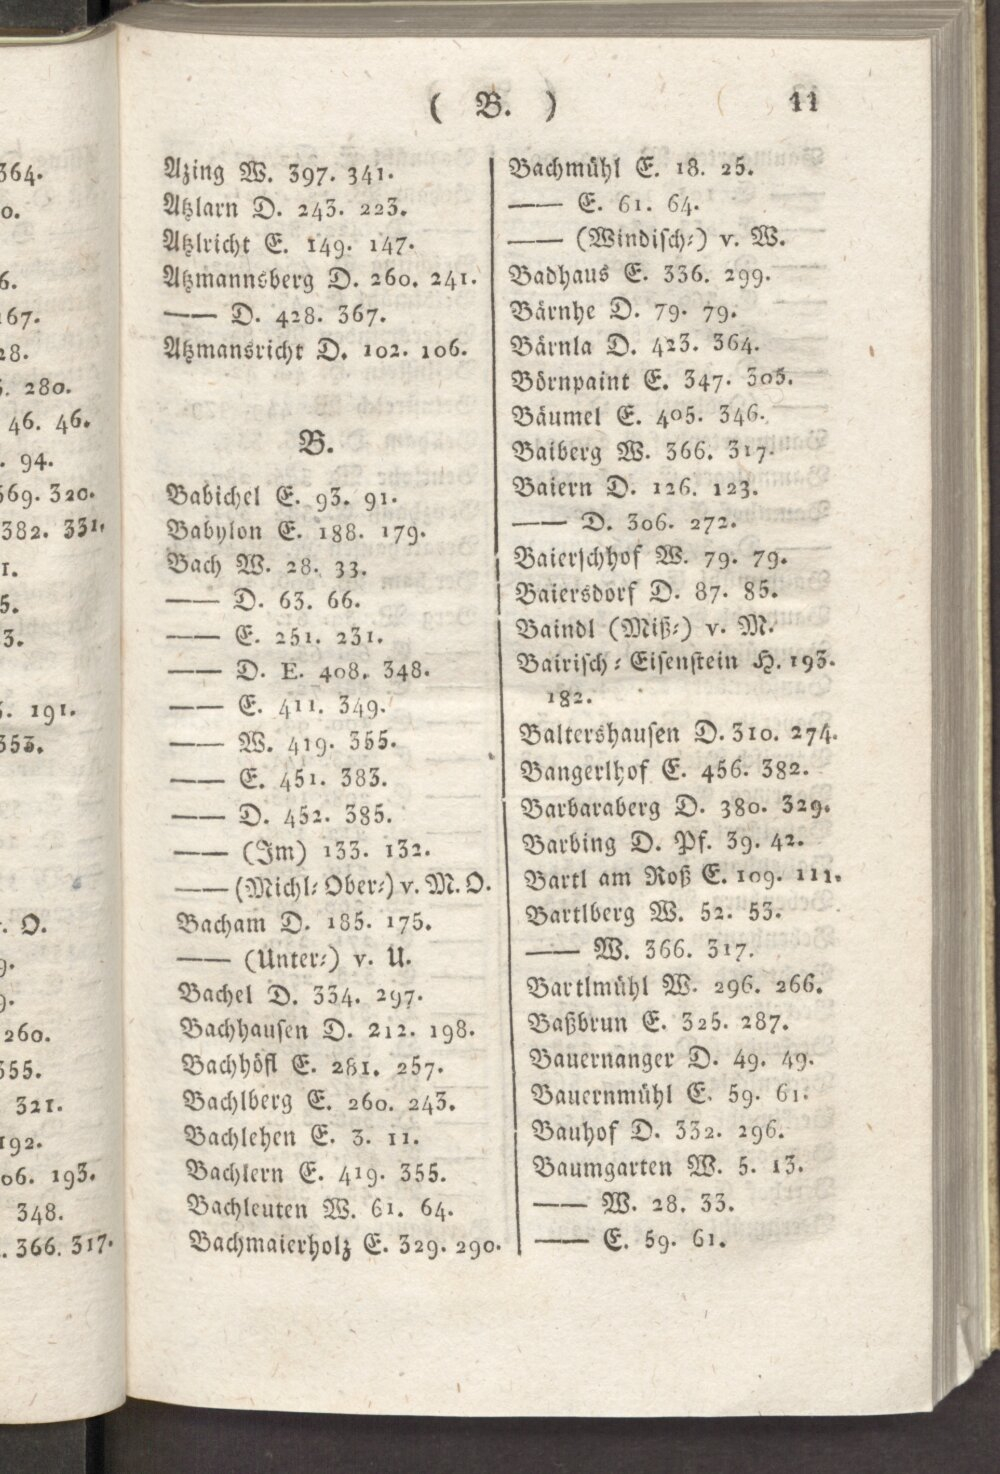 ( B. ) 11
Azing W. 397. 341.
Atzlarn D. 243. 223.
Atzlricht E. 149. 147.
Atzmannsberg D. 260. 241.
—— D. 428. 367.
Atzmansricht D. 102. 106.
B.
Babichel E. 93. 91.
Babylon E. 188. 179.
Bach W. 28. 33.
—— D. 63. 66.
—— E. 251. 231.
—— D. E. 408. 348.
—— E. 411. 349.
—— W. 419. 355.
—— E. 451. 383.
—— D. 452. 385.
—— (Im) 133. 132.
—— (Michl⸗Ober⸗) v. M. O.
Bacham D. 185. 175.
—— (Unter⸗) v. U.
Bachel D. 334. 297.
Bachhausen D. 212. 198.
Bachhöfl E. 281. 257.
Bachlberg E. 260. 243.
Bachlehen E. 3. 11.
Bachlern E. 419. 355.
Bachleuten W. 61. 64.
Bachmaierholz E. 329. 290.
Bachmühl E. 18. 25.
—— E. 61. 64.
—— (Windisch⸗) v. W.
Badhaus E. 336. 299.
Bärnhe D. 79. 79.
Bärnla D. 423. 364.
Börnpaint E. 347. 305.
Bäumel E. 405. 346.
Baiberg W. 366. 317.
Baiern D. 126. 123.
—— D. 306. 272.
Baierschhof W. 79. 79.
Baiersdorf D. 87. 85.
Baindl (Miß⸗) v. M.
Bairisch⸗Eisenstein H. 193.
182.
Baltershausen D. 310. 274.
Bangerlhof E. 456. 382.
Barbaraberg D. 380. 329.
Barbing D. Pf. 39. 42.
Bartl am Roß E. 109. 111.
Bartlberg W. 52. 53.
—— W. 366. 317.
Bartlmühl W. 296. 266.
Baßbrun E. 325. 287.
Bauernanger D. 49. 49.
Bauernmühl E. 59. 61.
Bauhof D. 332. 296.
Baumgarten W. 5. 13.
—— W. 28. 33.
—— E. 59. 61.